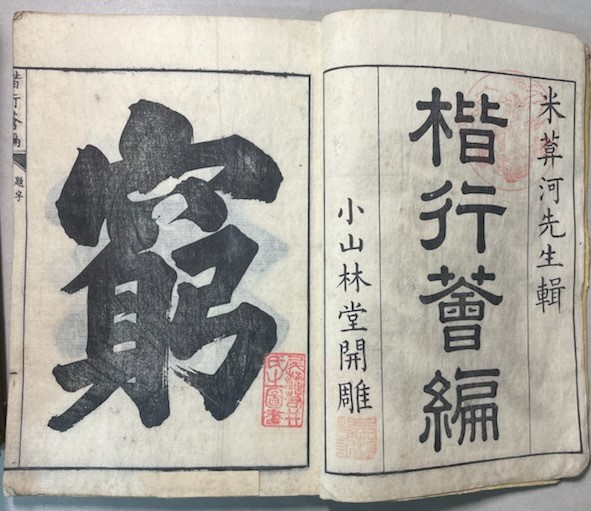 米葊河先生輯
楷行薈編
小山林堂開雕
窮
楷行薈編
題字